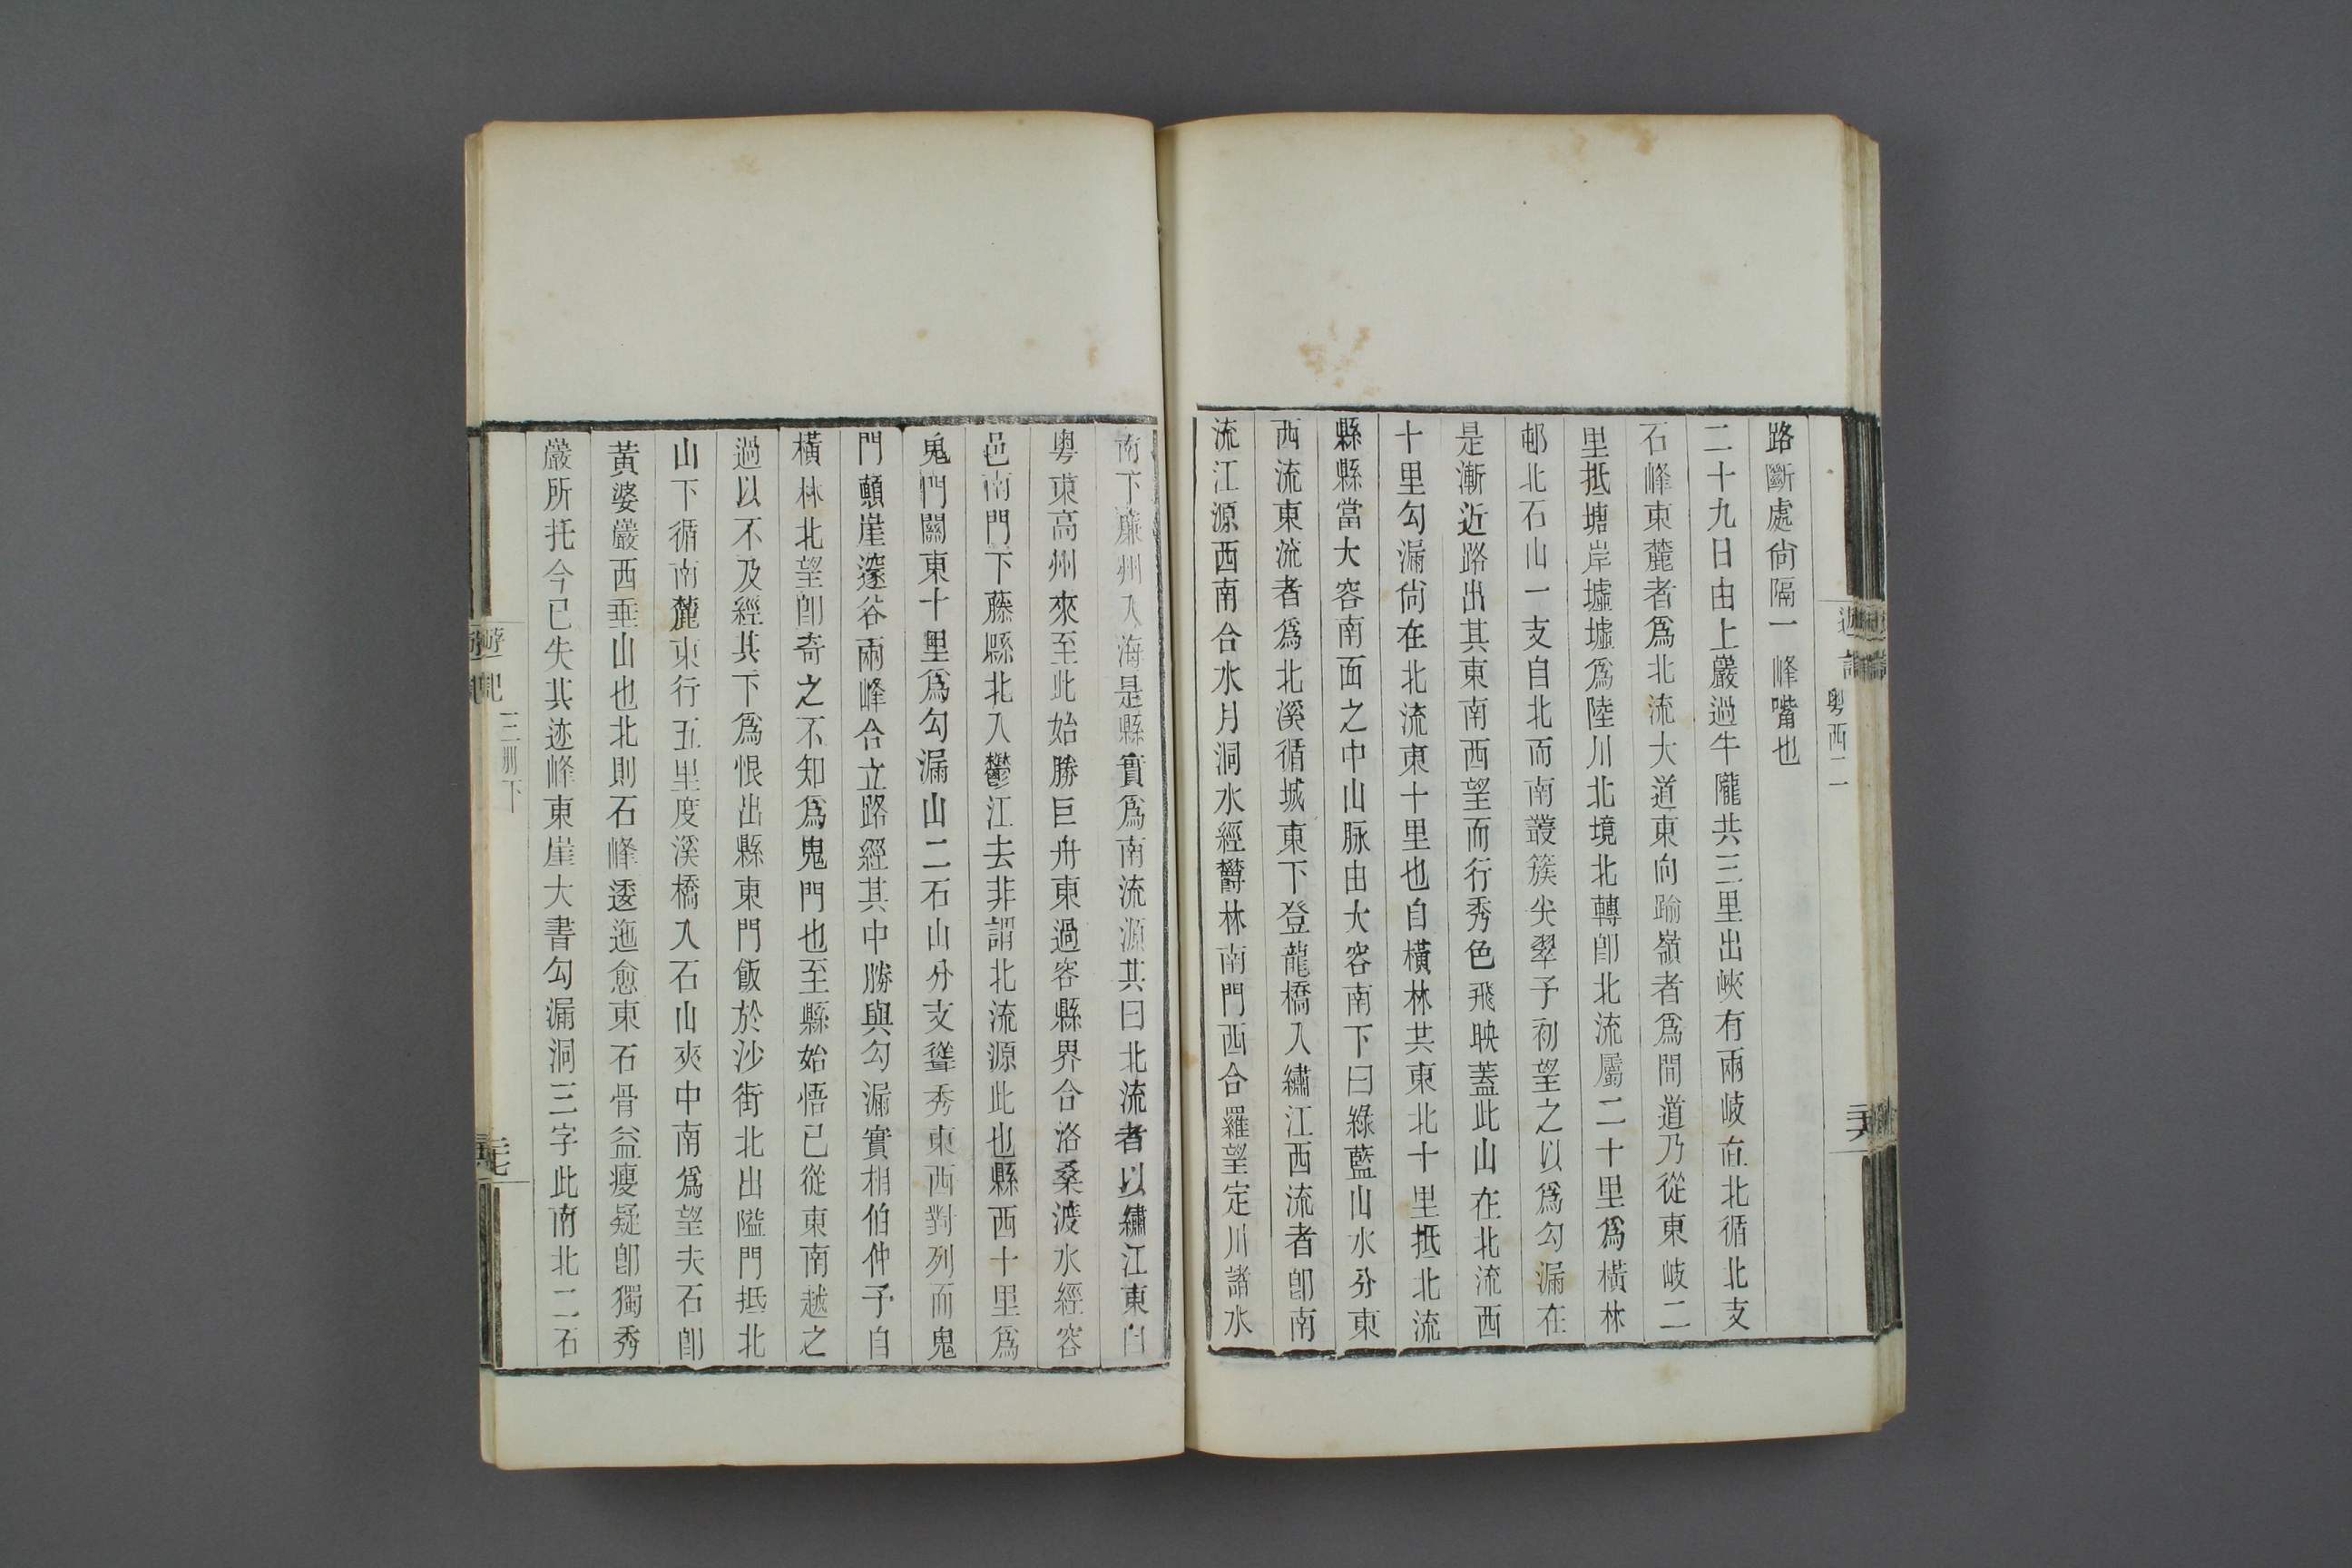 遊記
粵西二
路斷處尙隔一峰嘴也
二十九日由上巖過牛隴共三里出峽有兩岐直北循北支
石峰東麓者爲北流大道東向踰嶺者爲間道乃從東岐二
里抵塘岸墟墟爲陸川北境北轉卽北流屬二十里爲橫林
邨北石山一支自北而南叢簇尖翠予初望之以爲勾漏在
是漸近路出其東南西望而行秀色飛映蓋此山在北流西
十里勾漏尙在北流東十里也自橫林共東北十里抵北流
縣縣當大容南面之中山脉由大容南下曰綠藍山水分東
西流東流者爲北溪循城東下登龍橋入繡江西流者卽南
流江源西南合水月洞水經欝林南門西合羅望定川諸水
南下廉州入海是縣實爲南流源其曰北流者以繡江東自
粵東高州來至此始勝巨舟東過容縣界合洛桑渡水經容
邑南門下藤縣北入鬱江去非謂北流源此也縣西十里爲
鬼門關東十里爲勾漏山二石山分支聳秀東西對列而鬼
門顛崖邃谷兩峰合立路經其中勝與勾漏實相伯仲予自
橫林北望卽奇之不知爲鬼門也至縣始悟已從東南越之
過以不及經其下爲恨出縣東門飯於沙街北出隘門抵北
山下循南麓東行五里度溪橋入石山夾中南爲望夫石卽
黃婆巖西垂山也北則石峰逶迤愈東石骨益瘦疑卽獨秀
巖所托今已失其迹峰東崖大書勾漏洞三字此南北二石
遊記
三冊下